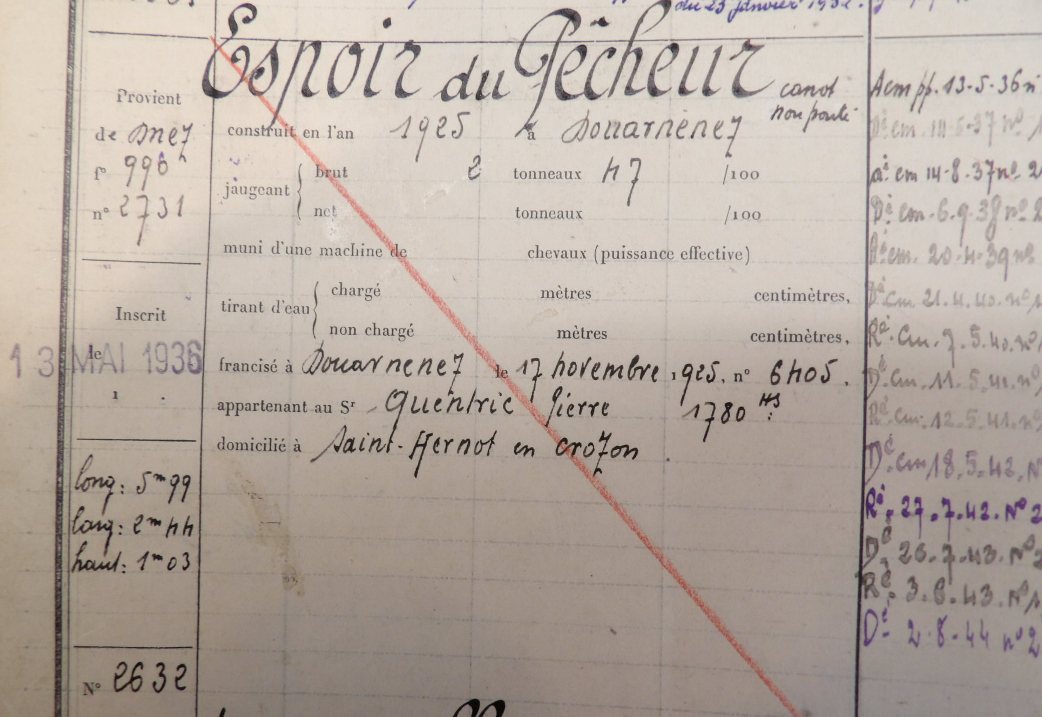 du 23 janvier 1932.
Espoir du Pêcheur canot
non ponté
Provient
de Dnez
f° 990
n° 2731
construit en l'an 1925 à Douarnenez
jaugeant { brut 2 tonneaux 47 /100
net tonneaux /100
muni d'une machine de chevaux (puissance effective)
tirant d'eau { chargé mètres centimètres,
non chargé mètres centimètres,
Inscrit
le 13 MAI 1936
francisé à Douarnenez le 17 novembre 1925, n° 6405.
appartenant au Sr Quentric Pierre 1780 HS
domicilié à Saint-Hernot en Crozon.
long: 5m99
larg: 2m44
haut: 1m03
N° 2632
Acm pf. 13-5-36 n
Dé cm 14-5-37 n°
a: cm 14-8-37 n° 2
Dé cm. 6.9.38 n° 2
Dé cm. 20-4-39 n°
Dé cm. 21.4.40. n°
Ré. Cm. 7.5.40. n°
Dé. Cm. 11.5.41. n°
Ré. Cm. 12.5.41. n°
Dé. cm 18.5.42. N°
Ré. 27.7.42. N° 2
Dé. 26.7.43. N° 2
Ré. 3.8.43. N° 1
Dé. 2-8-44 n° 2